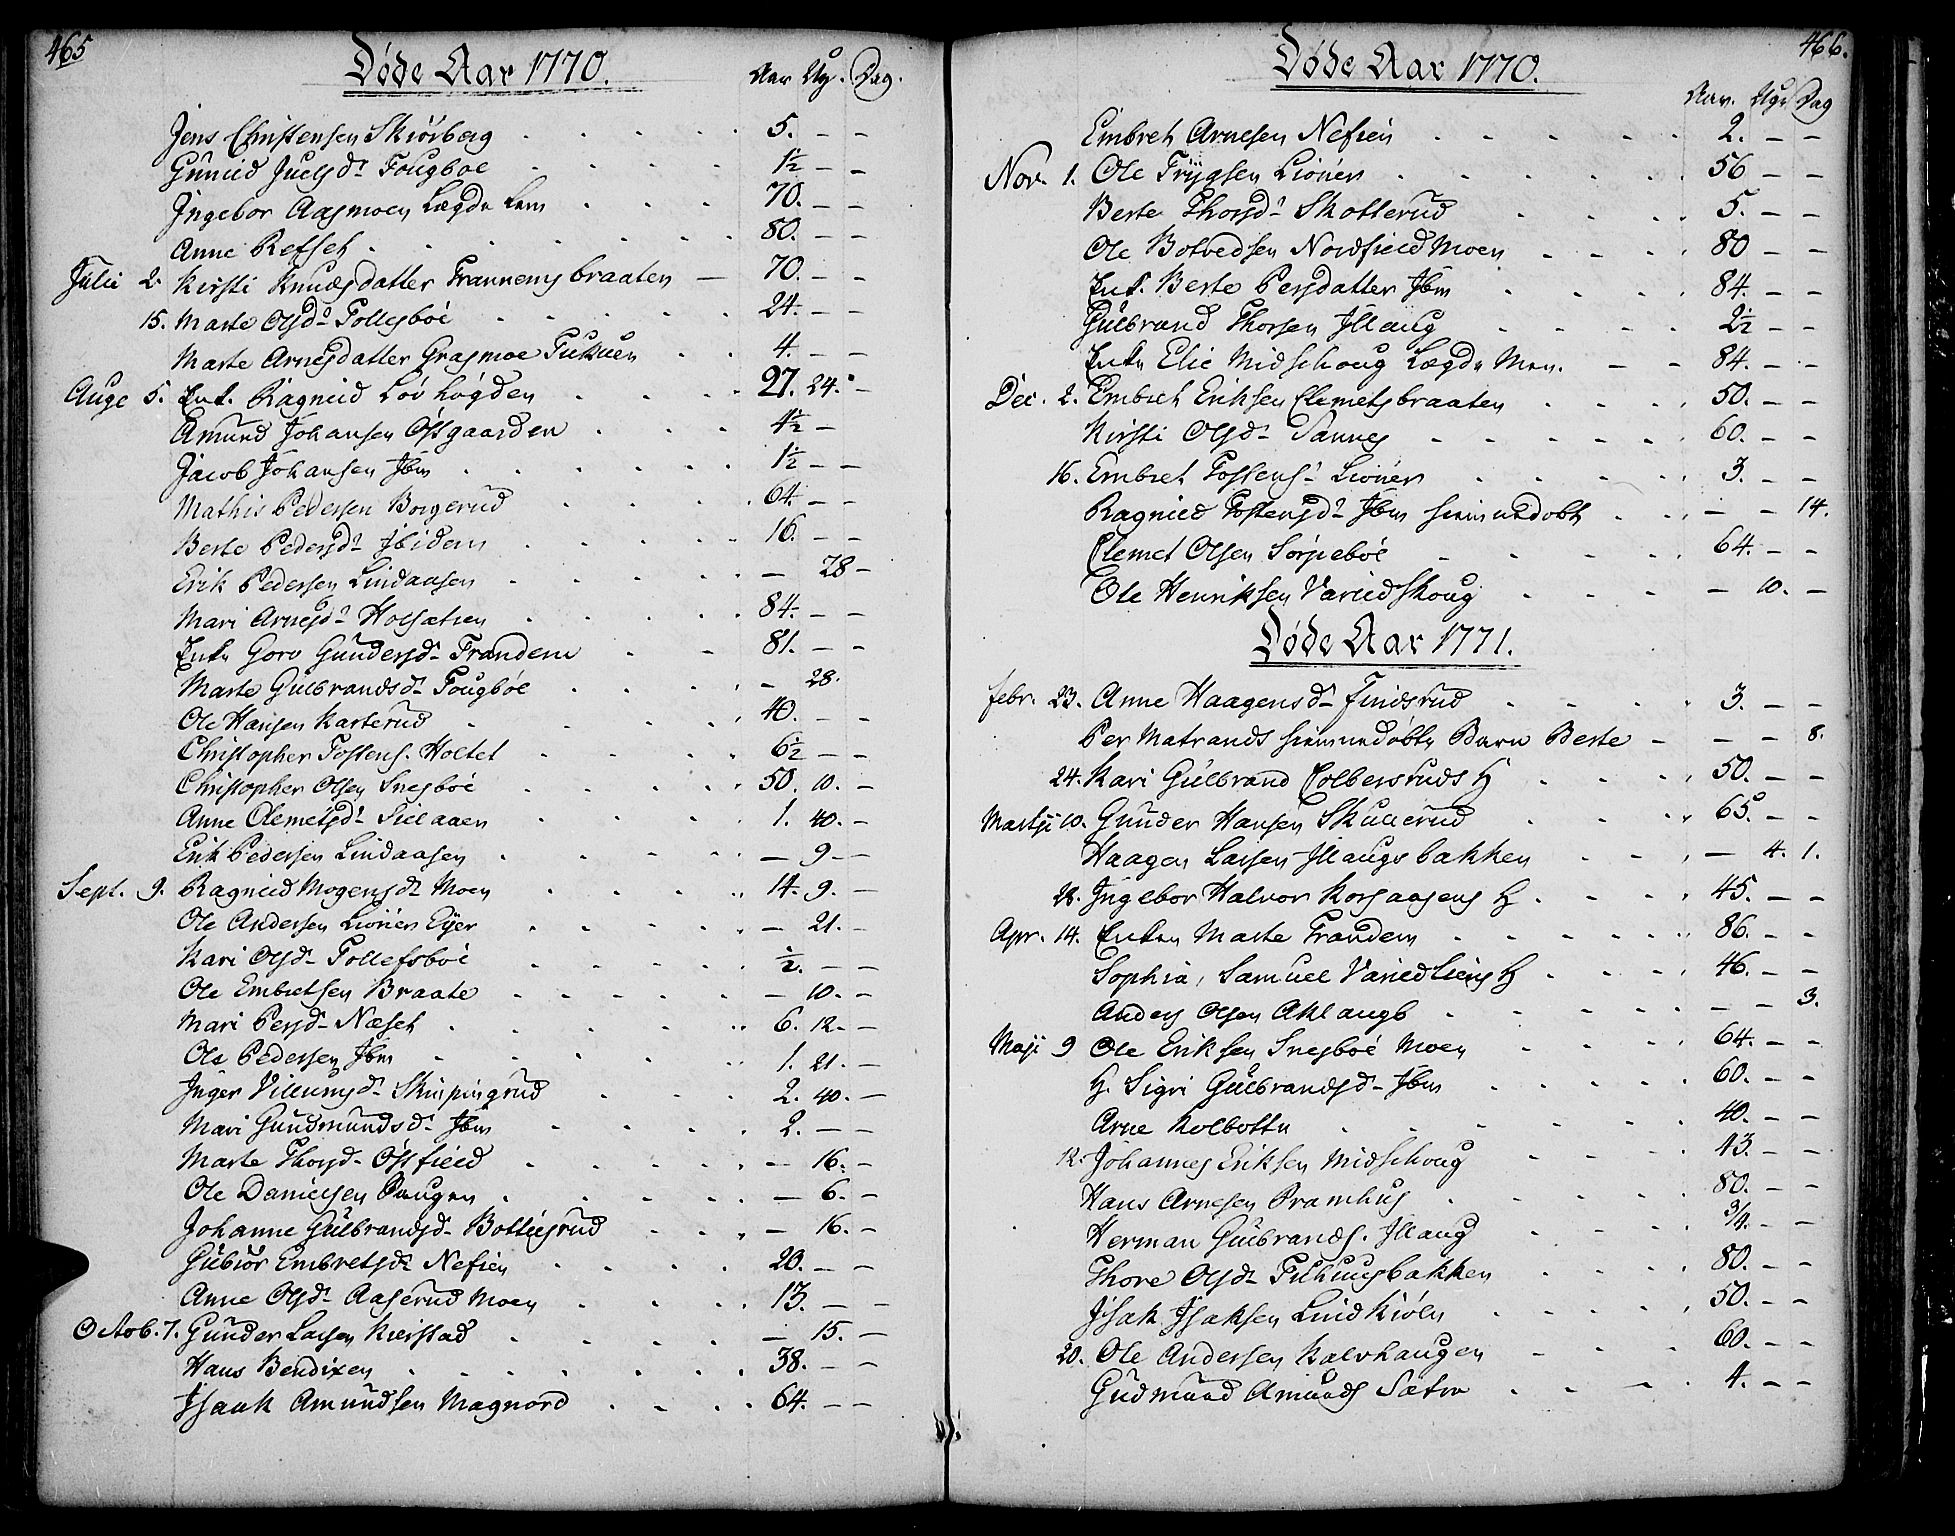 465
Døde Aar 1770.
Aar Ug. Dag.
Jens Christensen Skiørberg . . . . 5. – –
Gunild Juelsd: Fougboe . . . . 1½ – –
Ingebor Aasmoen Lægds Lem . . . 70. – –
Anne Refset . . . . . . 80. – –
Julii 2. Kirsti Knudsdatter Trannemsbraaten – 70. – –
15. Marte Olsd: Tollesboe . . . . 24. – –
Marte Arnesdatter Grasmoe . . 4. – –
Aug. 5. Enk. Ragnild Løvhøgden . . . 27. 24. –
Amund Johansen Østgaarden . . . 4½ –
Jacob Johansen Ibm . . . . 1½ – –
Mathis Pedersen Borgerud . . . 64. – –
Berte Pedersd: Ibidem . . . . 16. – –
Erik Pedersen Lindaasen . . . . – 28 –
Mari Arnesd: Holsætren . . . . 84. – –
Enke Goro Gundersd: Trandem . . 81. – –
Marte Gulbrandsd: Fougbøe . . . – 28.
Ole Hansen Karterud . . . . 40. – –
Christopher Tostens. Holtet . . . 6½ – –
Christopher Olsen Snesbøe . . . 50. 10. –
Anne Clemetsd: Sielaaen . . . . 1. 40. –
Erik Pedersen Lindaasen . . . . – 9 –
Sept. 9. Ragnild Mogensd: Moen . . . 14. 9. –
Ole Andersen Lionen Eyer . . . . – 21. –
Kari Olsd: Tollefsbøe . . . . ½. – –
Ole Embretsen Braate . . . . – 10. –
Mari Persd: Næset . . . . 6. 12. –
Ole Pedersen Ibm . . . . 1. 21. –
Inger Villumsd: Skinpingrud . . . 2. 40. –
Mari Gudmundsd: Ibm . . . . 2. – –
Marte Thorsd: Østfield . . . . – 16. –
Ole Danielsen Haugen . . . . – 6. –
Johanne Gulbrandsd: Bottilsrud . . . – 16. –
Gubiør Embretsd: Nefsien . . . . 20. – –
Anne Olsd: Aaserud Moen . . . 13. – –
Octob. 7. Gunder Larsen Kierstad . . . – 15. –
Hans Bendixen . . . . . 38. – –
Isaak Amundsen Magnord . . . 64. – –
466.
Døde Aar 1770.
Aar. Uge Dag
Embret Arnesen Nefsien . . . . 2. – –
Nov. 1. Ole Trygsen Lionen . . . . 56 – –
Berte Thorsd: Skotterud . . . 5. – –
Ole Botvedsen Nordfield Moen . . . 80 – –
Enk. Berte Persdatter Ibm . . . 84. – –
Gulbrand Thorsen Illaug . . . . 2½ – –
Enke Elie Midschoug Lægds Men. – – 84. – –
Dec. 2. Embret Eriksen Clemetsbraaten . . . 50. – –
Kirsti Olsd: Sannes . . . . 60. – –
16. Embret Tostens: Lionen . . . . 3. – –
Ragnild Tostensd: Ibm hiemmedobt . . – – 14.
Clemet Olsen Sørpebøe . . . . 64. – –
Ole Henriksen Varildskoug . . . – 10. –
Døde Aar 1771.
Febr. 23. Anne Haagensd: Findsrud . . . 3. – –
Per Matrands hiemmedøbte Barn Berte – – – 8.
24. Kari Gulbrand Colbersruds H . . . 50. – –
Martji 10. Gunder Hansen Skullerud . . . 65. – –
Haagen Larsen Illaugsbakken . . . – 4. 1.
28. Ingebor Halvor Korsaasens H . . . 45. – –
Apr. 14. Enken Marte Trandem . . . . 86. – –
Sophia, Samuel Varildliens H . . . 46. – –
Anders Olsen Aklangb . . . . – – 3.
Maji 9 Ole Eriksen Snesbøe Moen . . . 64. – –
H. Sigri Gulbrandsd: Ibm . . . 60. – –
Arne Kolbotte . . . . . 40. – –
12. Johannes Eriksen Midschoug . . . 43. – –
Hans Arnesen Pramhus . . . . 80. – –
Herman Gulbrands. Illaug . . . ¾. – –
Thore Olsd: . . . . 80. – –
Isak Isaksen Lindkiølen . . . . 50. – –
20. Ole Andersen Kalvhaugen . . . 60. – –
Gudmund Amunds Sætre . . . . 4. – –